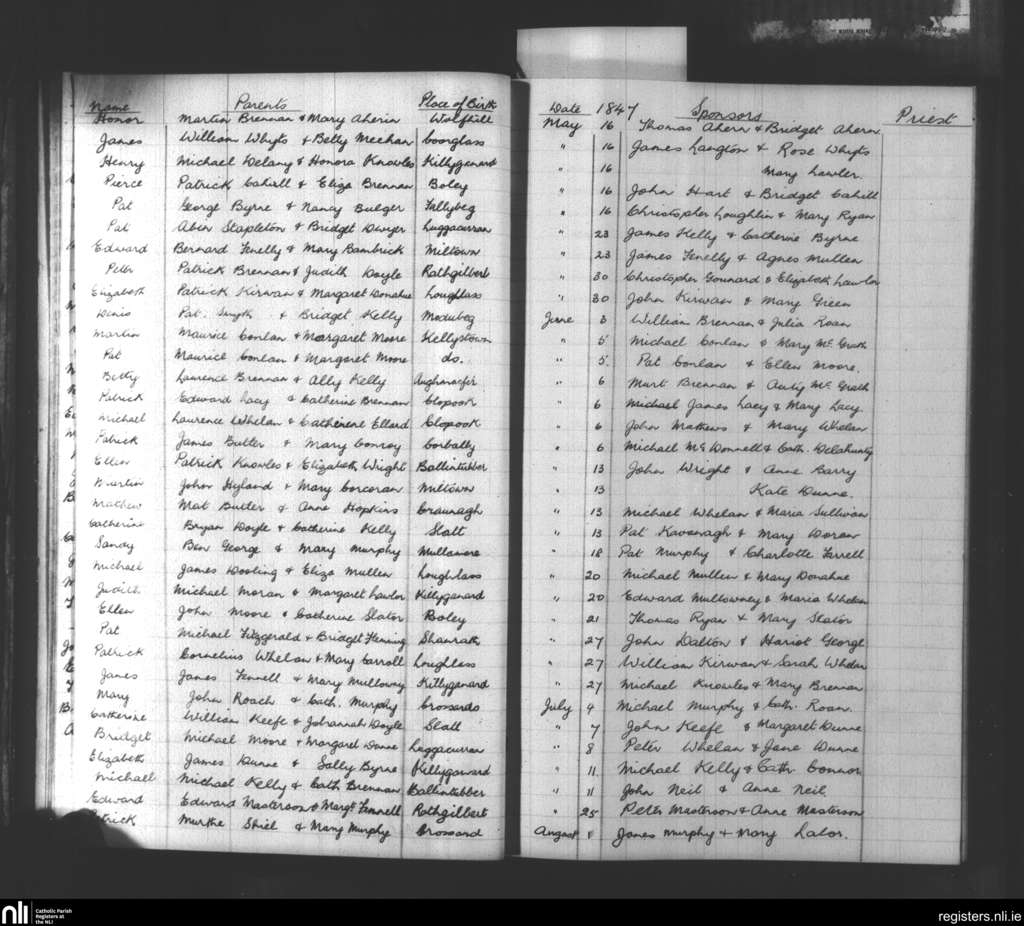 Name Parents Place of Birth Date 1847 Sponsors Priest
Honor Martin Brennan & Mary Aherin Wolfhill May 16 Thomas Ahern & Bridget Ahern
James William Whyts & Betty Meehan Coorglass " 16 James Langton & Rose Whyts
Henry Michael Delany & Honora Knowles Killyganard " 16 Mary Lawler.
Pierce Patrick Cahill & Eliza Brennan Boley " 16 John Hart & Bridget Cahill
Pat George Byrne & Nancy Bulger Tallybeg " 16 Christopher Loughlin & Mary Ryan
Pat Aben Stapleton & Bridget Dwyer Luggacurran " 23 James Kelly & Catherine Byrne
Edward Bernard Fenelly & Mary Bambrick Miltown " 23 James Fenelly & Agnes Mullen
Peter Patrick Brennan & Judith Doyle Rathgilbert " 30 Christopher Gonnard & Elizabeth Lawlor
Elizabeth Patrick Kirwan & Margaret Donahue Loughlass " 30 John Kirwan & Mary Green
Denis Pat. Smyth & Bridget Kelly Modubeg June 3 William Brennan & Julia Roan
Martin Maurice Conlan & Margaret Moore Kellystown " 5 Michael Conlan & Mary McGrath
Pat Maurice Conlan & Margaret Moore do. " 5. Pat Conlan & Ellen Moore.
Betty Laurence Brennan & Ally Kelly " 6 Murt Brennan & McGrath
Patrick Edward Lacy & Catherine Brennan Clopook " 6 Michael James Lacy & Mary Lacy.
Michael Laurence Whelan & Catherene Ellard Clopook " 6 John Mathews & Mary Whelan
Patrick James Butler & Mary Conroy Corbally " 6 Michael McDonnell & Cath. Delahunty
Ellen Patrick Knowles & Elizabeth Wright Ballintubber " 13 John Wright & Anne Barry
Martin John Hyland & Mary Corcoran Miltown " 13 Kate Dunne.
Mathew Mat Butler & Anne Hopkins Craunagh " 13 Michael Whelan & Maria Sullivan
Catherine Bryan Doyle & Catherine Kelly Slatt " 13 Pat Kavenagh & Mary Doran
Sandy Ben George & Mary Murphy Mullamore " 18 Pat Murphy & Charlotte Farrell
Michael James Dooling & Eliza Mullen Loughlass " 20 Michael Mullen & Mary Donahue
Judith Michael Moran & Margaret Lawlor Killyganard " 20 Edward Mullowney & Maria Whelan
Ellen John Moore & Catherine Slator Booley " 21 Thomas Ryan & Mary Slator
Pat Michael Fitzgerald & Bridget Fleming Shanrath " 27 John Dalton & Hariot George
Patrick Cornelius Whelan & Mary Carroll Loughlass " 27 William Kirwan & Sarah Whelan
James James Fennell & Mary Mulloway Killyganard " 27 Michael Knowles & Mary Brennan
Mary John Roach & Cath. Murphy Crossards July 4 Michael Murphy & Cath. Roan.
Catherine William Keefe & Johannah Doyle Slatt " 7 John Keefe & Margaret Dunne
Bridget Michael Moore & Margaret Dunne Luggacurran " 8 Peter Whelan & Jane Dunne
Elizabeth James Dunne & Sally Byrne Killygaward " 11 Michael Kelly & Cath Connor
Michael Michael Kelly & Cath Brennan Ballintubber " 11 John Neil & Anne Neil
Edward Edward Masterson & Margt Fennell Rathgilbert " 25 Peter Masterson & Anne Masterson
Patrick Murthe Shiel & Mary Murphy Crossard August 8 James Murphy & Mary Lalor.
nli Catholic Parish
Registers at
the NLI
registers.nli.ie